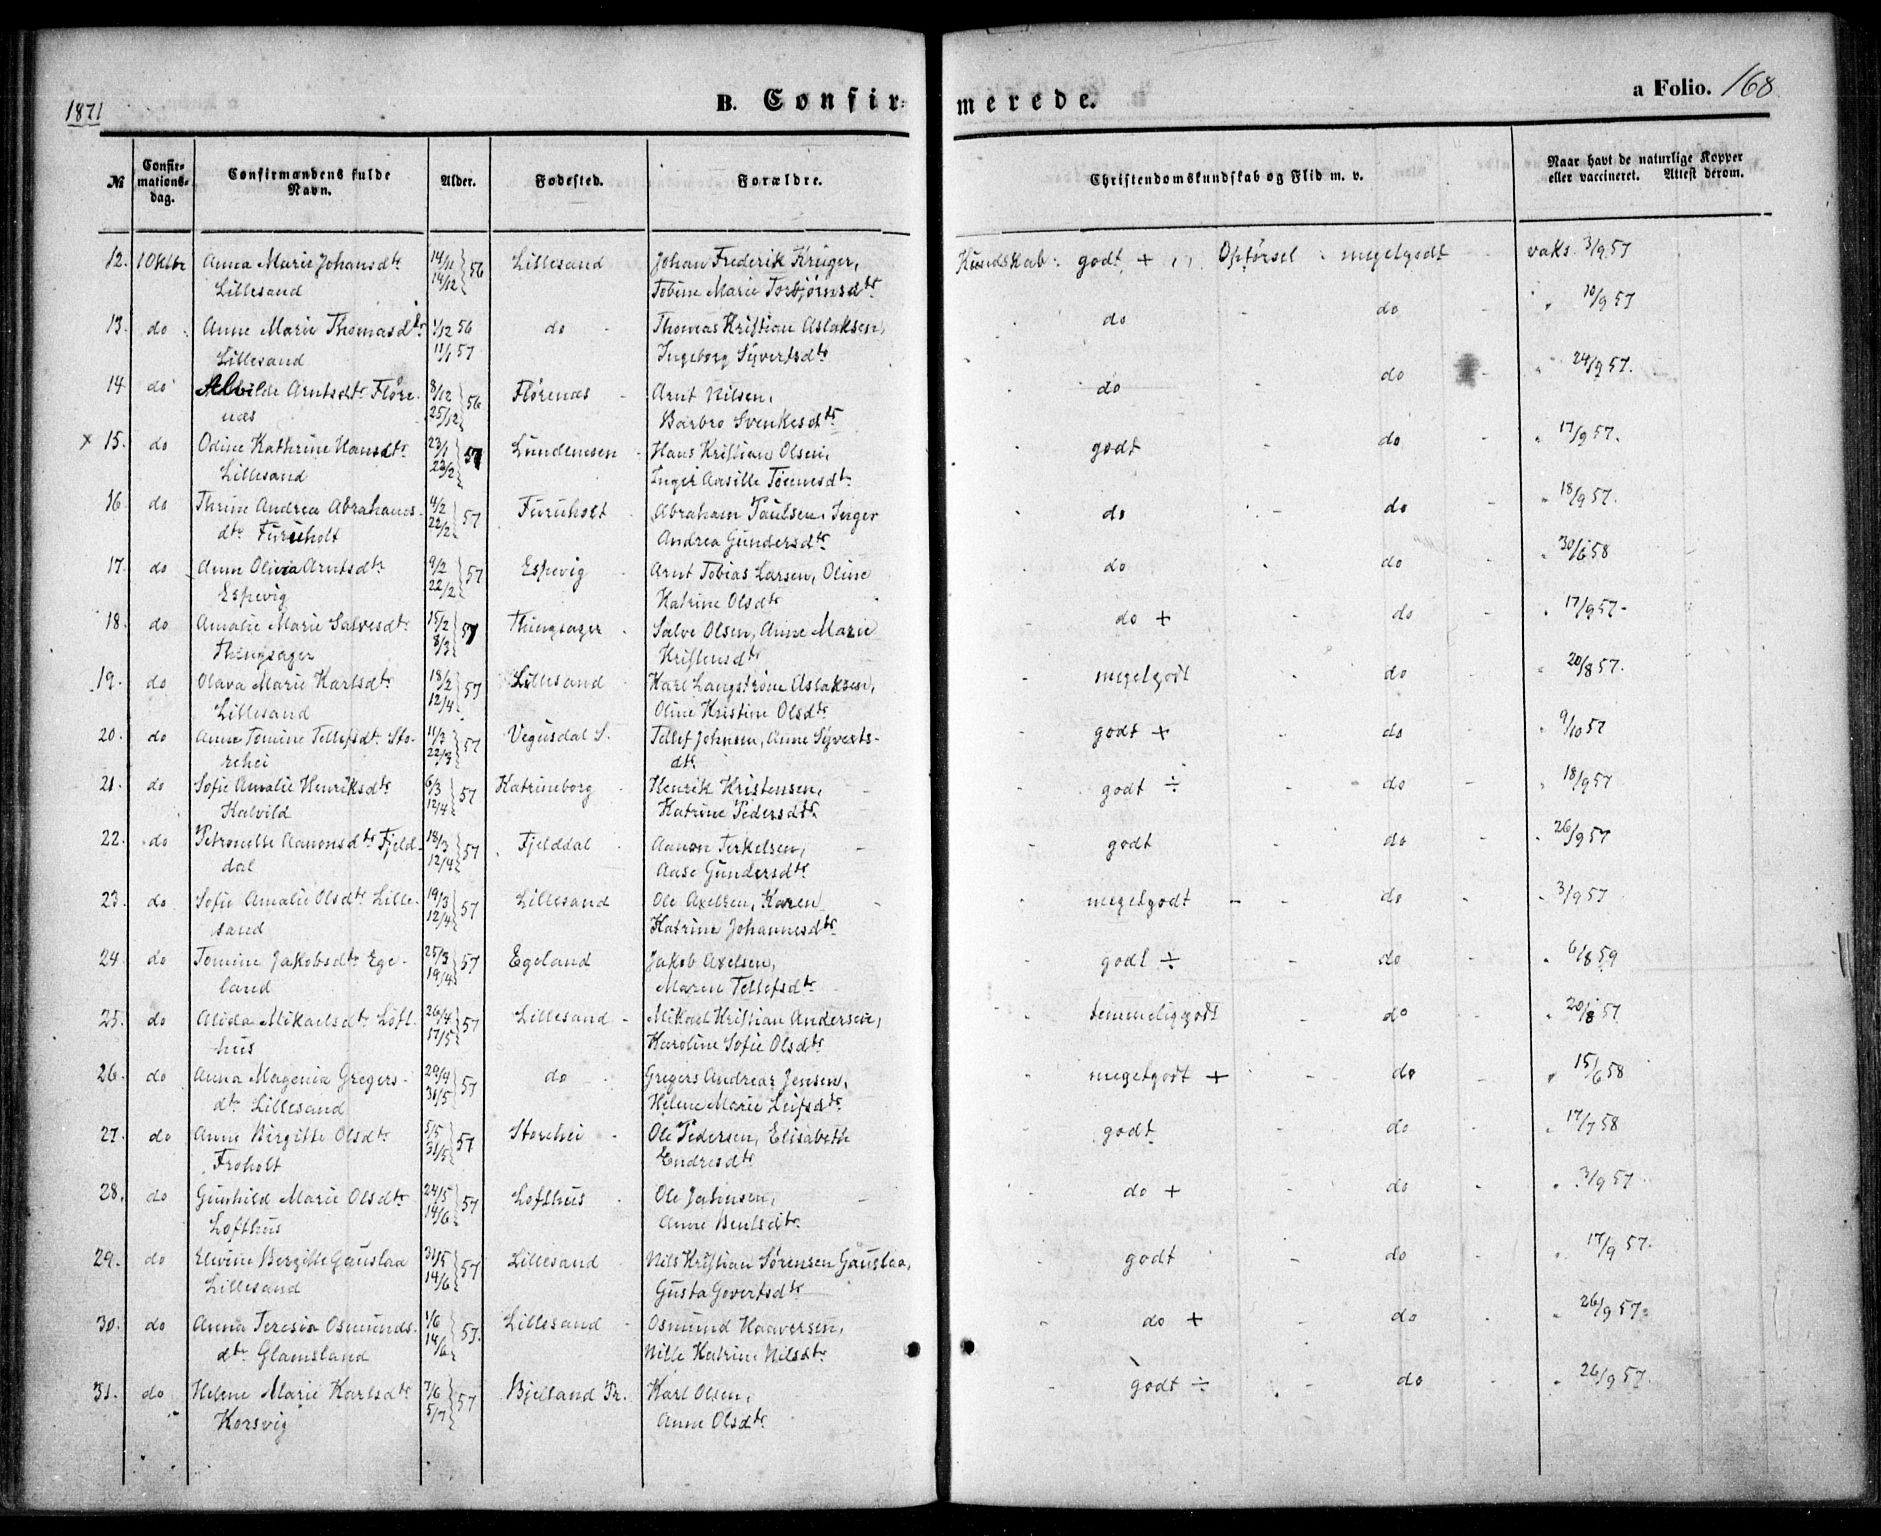 1871
B. Confir=
merede.
a Folio. 168
№
Confir=
mations=
dag.
Confirmandens fulde
Navn.
Alder.
Fødested.
Forældre.
Christendomskundskab og Flid m. v.
Naar havt de naturlige Kopper
eller vaccineret. Attest derom.
12. 1 Oktbr Anna Marie Johansdtr 14/11 56 Lillesand Johan Frederik Krüger, Kundskab: godt + Opførsel: megetgodt vaks. 3/9 57
Lillesand 14/12 Tobine Marie Torbjørnsdtr
13. do Anne Marie Thomasdtr 1/12 56 do Thomas Kristian Aslaksen, do - do " 10/9 57
Lillesand 11/1 57 Ingeborg Syvertsdtr
14 do Alvilde Arntsdtr Fløre- 8/12 56 Flørenæs Arnt Nilsen, do - do " 24/9 57.
næs 25/12 Barbro Svenkesdtr
x 15. do Odine Kathrine Hansdtr 23/1 57 Hans Kristian Olsen, godt - do " 17/9 57.
Lillesand 22/2 Inger Tønnesdtr
16 do Thrine Andrea Abrahams- 4/2 57 Furuholt Abraham Paulsen, Inger do - do " 18/9 57.
dtr Furuholt 22/2 Andrea Gundersdtr
17. do Anne Olivia Arntsdtr 9/2 57 Espevig Arnt Tobias Larsen, Oline do - do " 30/6 58
Espevig 22/2 Katrine Olsdtr
18. do Amalie Marie Salvesdtr 15/2 57 Thingsager Salve Olsen, Anne Marie do + - do " 17/9 57-
Thingsager 8/3 Kristensdtr
19. do Olava Marie Karlsdtr 18/2 57 Lillesand Karl Langstrøm Aslaksen, megetgodt do " 20/8 57.
Lillesand 12/4 Oline Kristine Olsdtr
20. do Anne Tomine Tellefsdtr Sto- 11/3 57 Vegusdal S. Tellef Johnsen, Anne Syverts- godt + do 9/10 57
rehei 22/3 dtr
21. do Sofie Amalie Henriksdtr 6/3 57 Katrineborg Henrik Kristensen, godt ÷ do " 18/9 57
Kalvild 12/4 Katrine Pedersdtr.
22. do Petronelle Aanonsdtr Fjeld- 18/3 57 Fjelddal Aanon Terkelsen, godt do " 26/9 57
dal 12/4 Aase Gundersdtr
23. do Sofie Amalie Olsdtr Lille- 19/3 57 Lillesand Ole Axelsen, Karen megetgodt - do - 3/9 57
sand 12/4 Katrine Johannesdtr
24 do Tomine Jakobsdtr Ege- 25/3 57 Egeland Jakob Axelsen, godt ÷ - do " 6/8 59
land 19/4 Maren Tellefsdtr
25. do Alida Mikaelsdtr Loft- 26/4 57 Lillesand - Mikael Kristian Andersen, temmeliggodt - do " 20/8 57
hus 17/5 Karoline Sofie Olsdtr
26. do Anna Magenia Gregers- 29/4 57 do Gregers Andreas Jensen, megetgodt + - do " 15/6 58
dtr Lillesand 31/5 Helene Marie Leifsdtr
27. do Anne Birgitte Olsdtr 5/5 57 Storehei Ole Pedersen, Elisabeth godt do " 17/7 58
Froholt 31/5 Endresdtr
28. do Gunhild Marie Olsdtr 24/5 57 Lofthus Ole Jahnsen, do + - do " 3/9 57
Lofthus 14/6 Anne Bentsdtr
29. do Elevine Bergitte Gauslaa 31/5 57 Lillesand Nils Kristian Sørensen Gauslaa, godt - do " 17/9 57.
Lillesand 14/6 Gusta Govertsdtr
30. do Anna Teresia Osmunds- 1/6 57. Lillesand Osmund Haaversen, do + - do " 26/9 57
dtr Glamsland 14/6 Nille Katrine Nilsdtr
31. do Helene Marie Karlsdtr 7/6 57 Bjelland Tr. Karl Olsen, godt ÷ - do " 26/9 57.
Korsvig 5/7 Anne Olsdtr